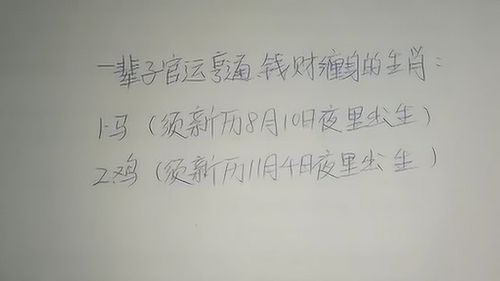 一辈子官运亨通 钱财缠身的生肖:
1.马（须新历8月10日夜里出生）
2.鸡（须新历11月4日夜里出生）